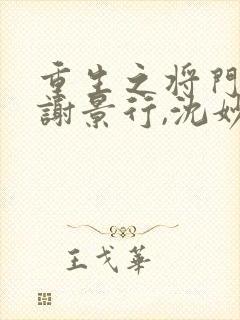 重生之将門
謝景行,沈妙
王戈華